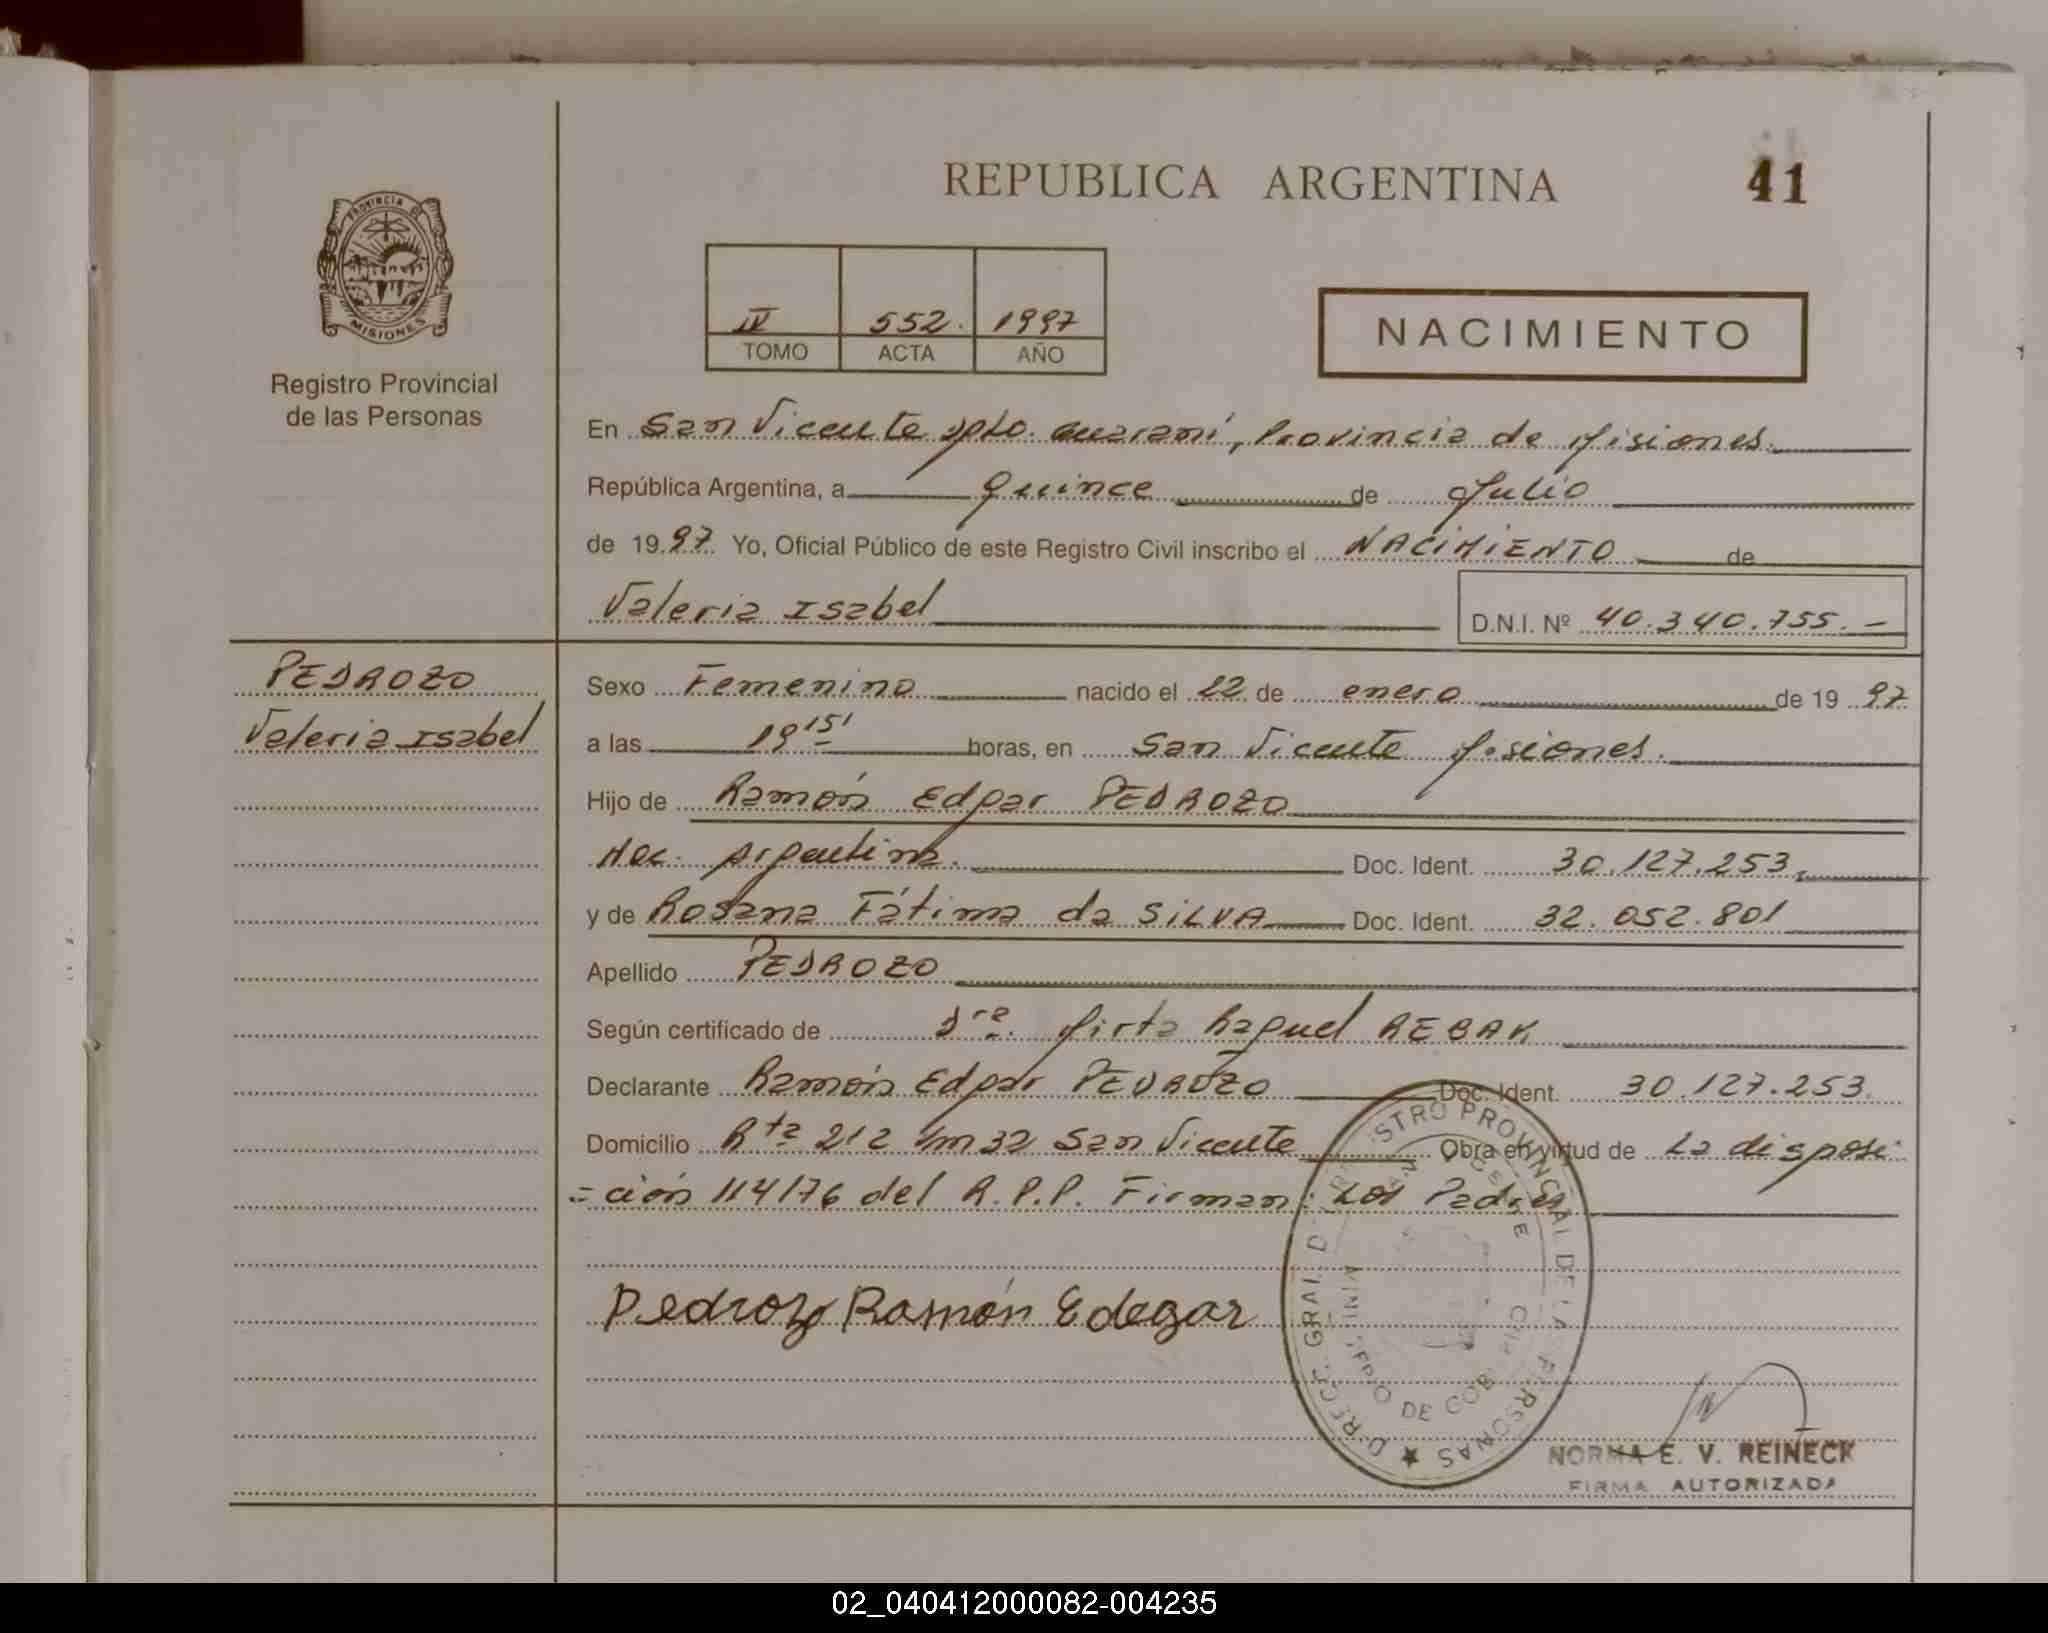 REPUBLICA ARGENTINA
41
PROVINCIA DE
MISIONES
Registro Provincial
de las Personas
IV 552. 1997
TOMO ACTA AÑO
NACIMIENTO
En San Vicente Dpto. Guaraní, Provincia de Misiones.
República Argentina, a Quince de Julio
de 1997 Yo, Oficial Público de este Registro Civil inscribo el NACIMIENTO de
Valeria Isabel
D.N.I. Nº 40.340.755.-
PEDROZO
Valeria Isabel
Sexo Femenino nacido el 22 de enero de 1997
a las 19 15' horas, en San Vicente Misiones.
Hijo de Ramón Edgar PEDROZO
Nac. argentina. Doc. Ident. 30.127.253.
y de Rosana Fátima da SILVA Doc. Ident. 32.052.801
Apellido PEDROZO
Según certificado de Dra. Mirta Raquel REBAK
Declarante Ramón Edgar PEDROZO Doc. Ident. 30.127.253.
Domicilio Rta 212 Km 32 San Vicente Obra en virtud de La disposi-
=ción 114/76 del R.P.P. Firman: Los Padres
Pedrozo Ramón Edegar
NORMA E. V. REINECK
FIRMA AUTORIZADA
02_040412000082-004235